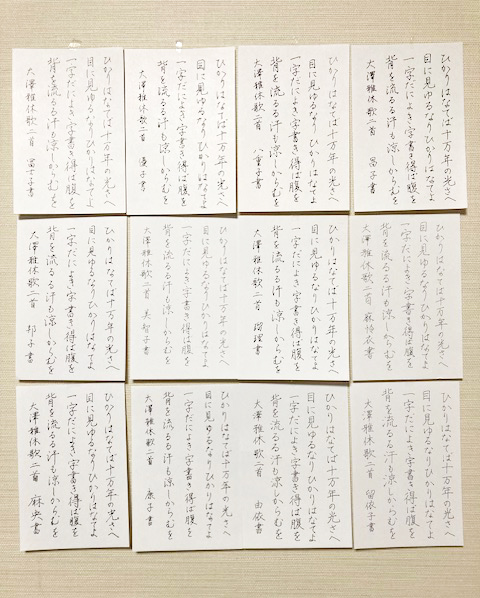 ひかりはなてば十万年の光さへ
目に見ゆるなりひかりはなてよ
一字だによき字書き得ば腹を
背を流るる汗も涼しからむを
大澤雅休歌二首 昌子書
ひかりはなてば十万年の光さへ
目に見ゆるなりひかりはなてよ
一字だによき字書き得ば腹を
背を流るる汗も涼しからむを
大澤雅休歌二首 八重子書
ひかりはなてば十万年の光さへ
目に見ゆるなりひかりはなてよ
一字だによき字書き得ば腹を
背を流るる汗も涼しからむを
大澤雅休歌二首 優子書
ひかりはなてば十万年の光さへ
目に見ゆるなりひかりはなてよ
一字だによき字書き得ば腹を
背を流るる汗も涼しからむを
大澤雅休歌二首 冨士子書
ひかりはなてば十万年の光さへ
目に見ゆるなりひかりはなてよ
一字だによき字書き得ば腹を
背を流るる汗も涼しからむを
大澤雅休歌二首
ひかりはなてば十万年の光さへ
目に見ゆるなりひかりはなてよ
一字だによき字書き得ば腹を
背を流るる汗も涼しからむを
大澤雅休歌二首 瑠理書
ひかりはなてば十万年の光さへ
目に見ゆるなりひかりはなてよ
一字だによき字書き得ば腹を
背を流るる汗も涼しからむを
大澤雅休歌二首 美智子書
ひかりはなてば十万年の光さへ
目に見ゆるなりひかりはなてよ
一字だによき字書き得ば腹を
背を流るる汗も涼しからむを
大澤雅休歌二首 邦子書
ひかりはなてば十万年の光さへ
目に見ゆるなりひかりはなてよ
一字だによき字書き得ば腹を
背を流るる汗も涼しからむを
大澤雅休歌二首 留依子書
ひかりはなてば十万年の光さへ
目に見ゆるなりひかりはなてよ
一字だによき字書き得ば腹を
背を流るる汗も涼しからむを
大澤雅休歌二首 由依書
ひかりはなてば十万年の光さへ
目に見ゆるなりひかりはなてよ
一字だによき字書き得ば腹を
背を流るる汗も涼しからむを
大澤雅休歌二首 康子書
ひかりはなてば十万年の光さへ
目に見ゆるなりひかりはなてよ
一字だによき字書き得ば腹を
背を流るる汗も涼しからむを
大澤雅休歌二首 麻央書